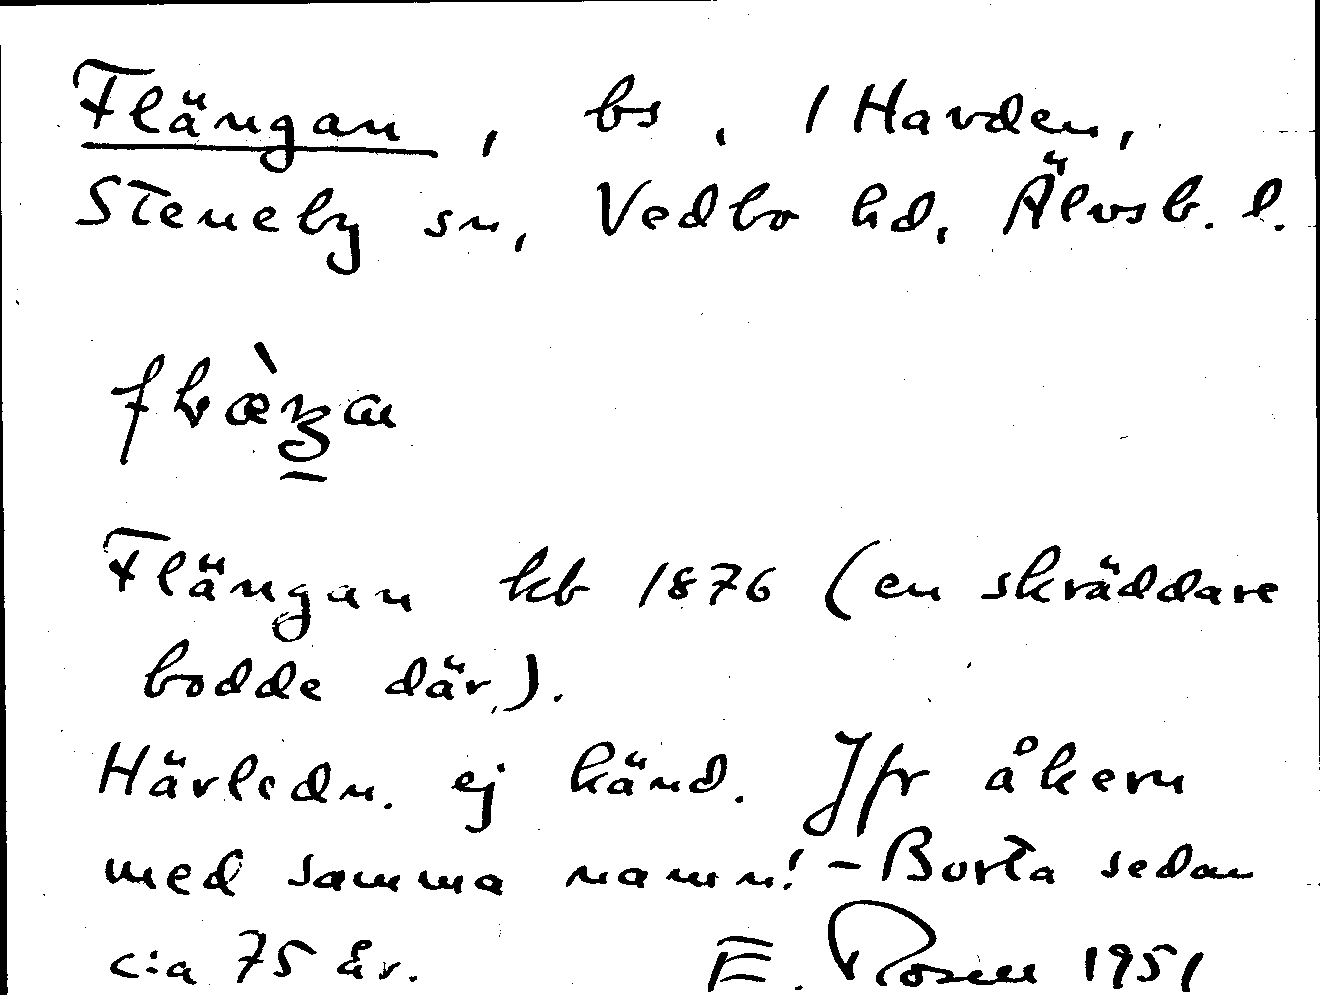 Flängan, bs, / Havden,
Steneby sn, Vedbo hd, Älvsb. l.
Flängan kb 1876 (en skräddare
bodde där).
Härledn. ej känd. Jfr åkern
med samma namn! – Borta sedan
c:a 75 år. E. Rosell 1951